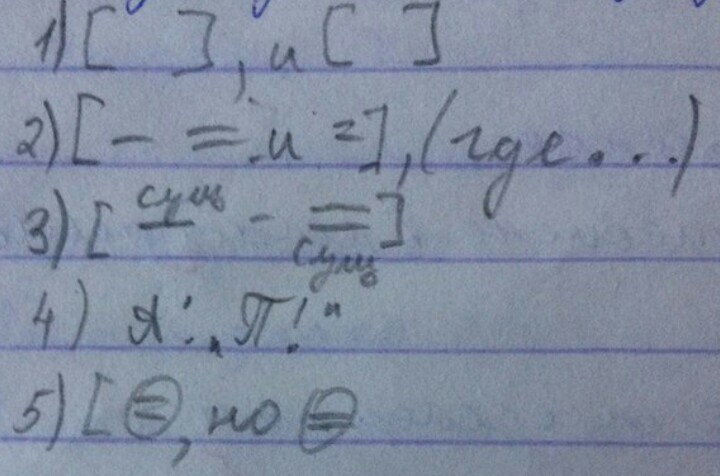 1) [ ], и [ ]
2) [– = и =], (где...)
3) [ сущ – = сущ ]
4) А: „П!"
5) [ =, но =